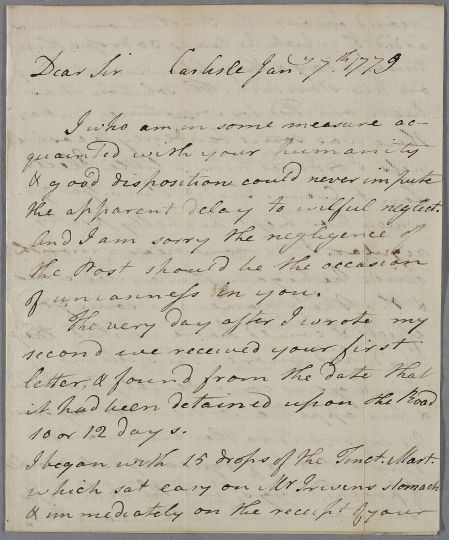 Dear Sir Carlisle Jany. 7th. 1779
I who am in some measure ac-
quainted with your humanity
& good disposition could never impute
the apparent delay to wilful neglect.
And I am sorry the negligence of
the Post should be the occasion
of uneasiness in you.
The very day after I wrote my
second we received your first
letter, & found from the date that
it had been detained upon the Road
10 or 12 days.
I began with 15 drops of the Tinct. Mart.
which sat easy on Mr Irwins stomach
& immediately on the receipt of your